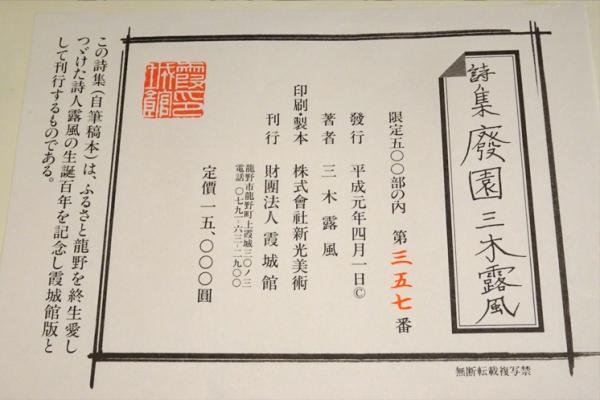 詩集 廢園 三木露風
限定五〇〇部の內 第三五七番
發行 平成元年四月一日©
著者 三木露風
印刷・製本 株式會社新光美術
刊行 財團法人 霞城館
龍野市龍野町上霞城三〇ノ三
電話 〇七九一-六三-二九〇〇
定價 一五、〇〇〇圓
霞城館印
この詩集(自筆稿本)は、ふるさと龍野を終生愛し
つゞけた詩人露風の生誕百年を記念し霞城館版と
して刊行するものである。
無断転載複写禁